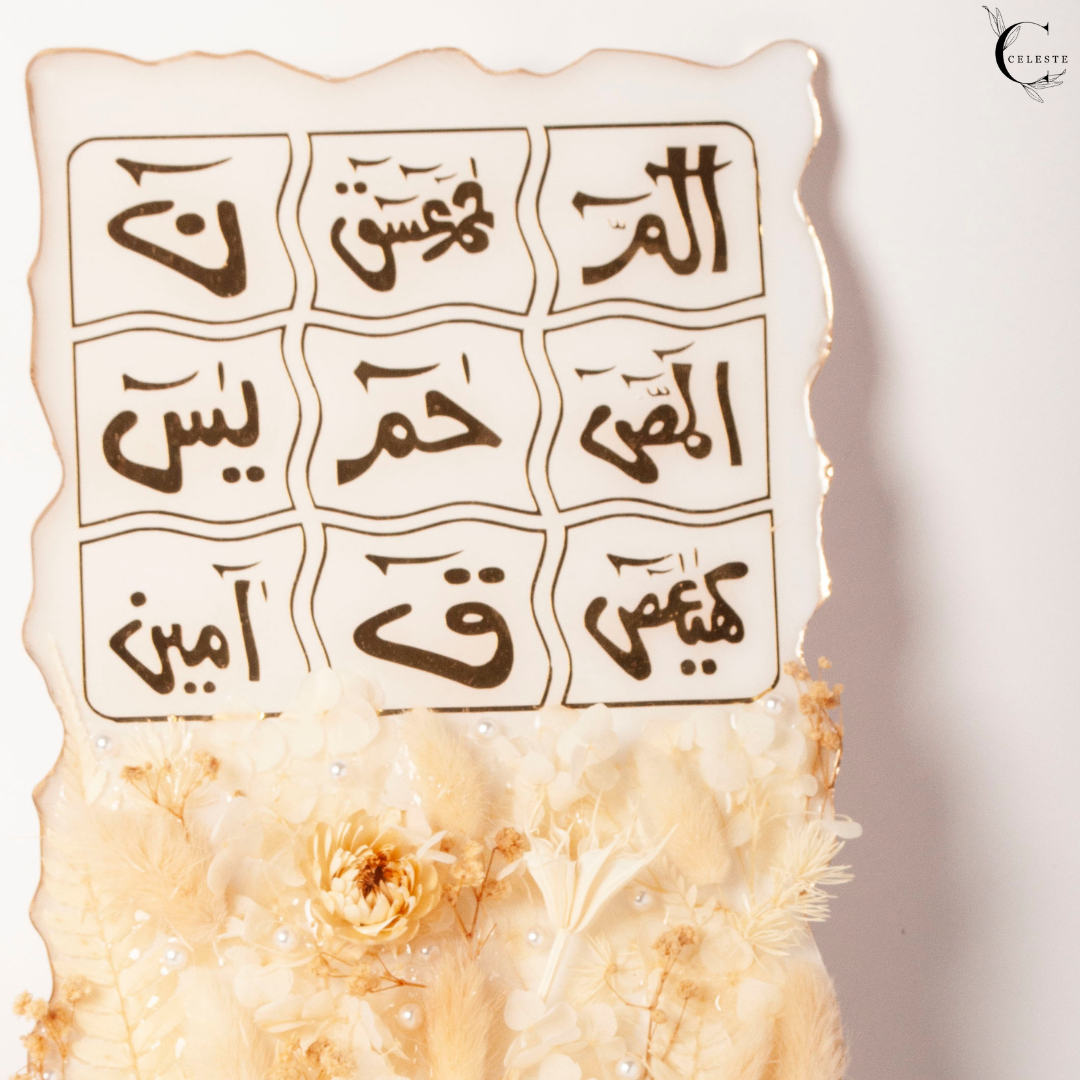 CELESTE
الٓمٓرّ حٰمٓعٓسٓقٓ نٓ
الٓمّٓصٓ حٰمٓ يٰسٓ
كٓهٰيٰعٓصٓ قٓ آمين